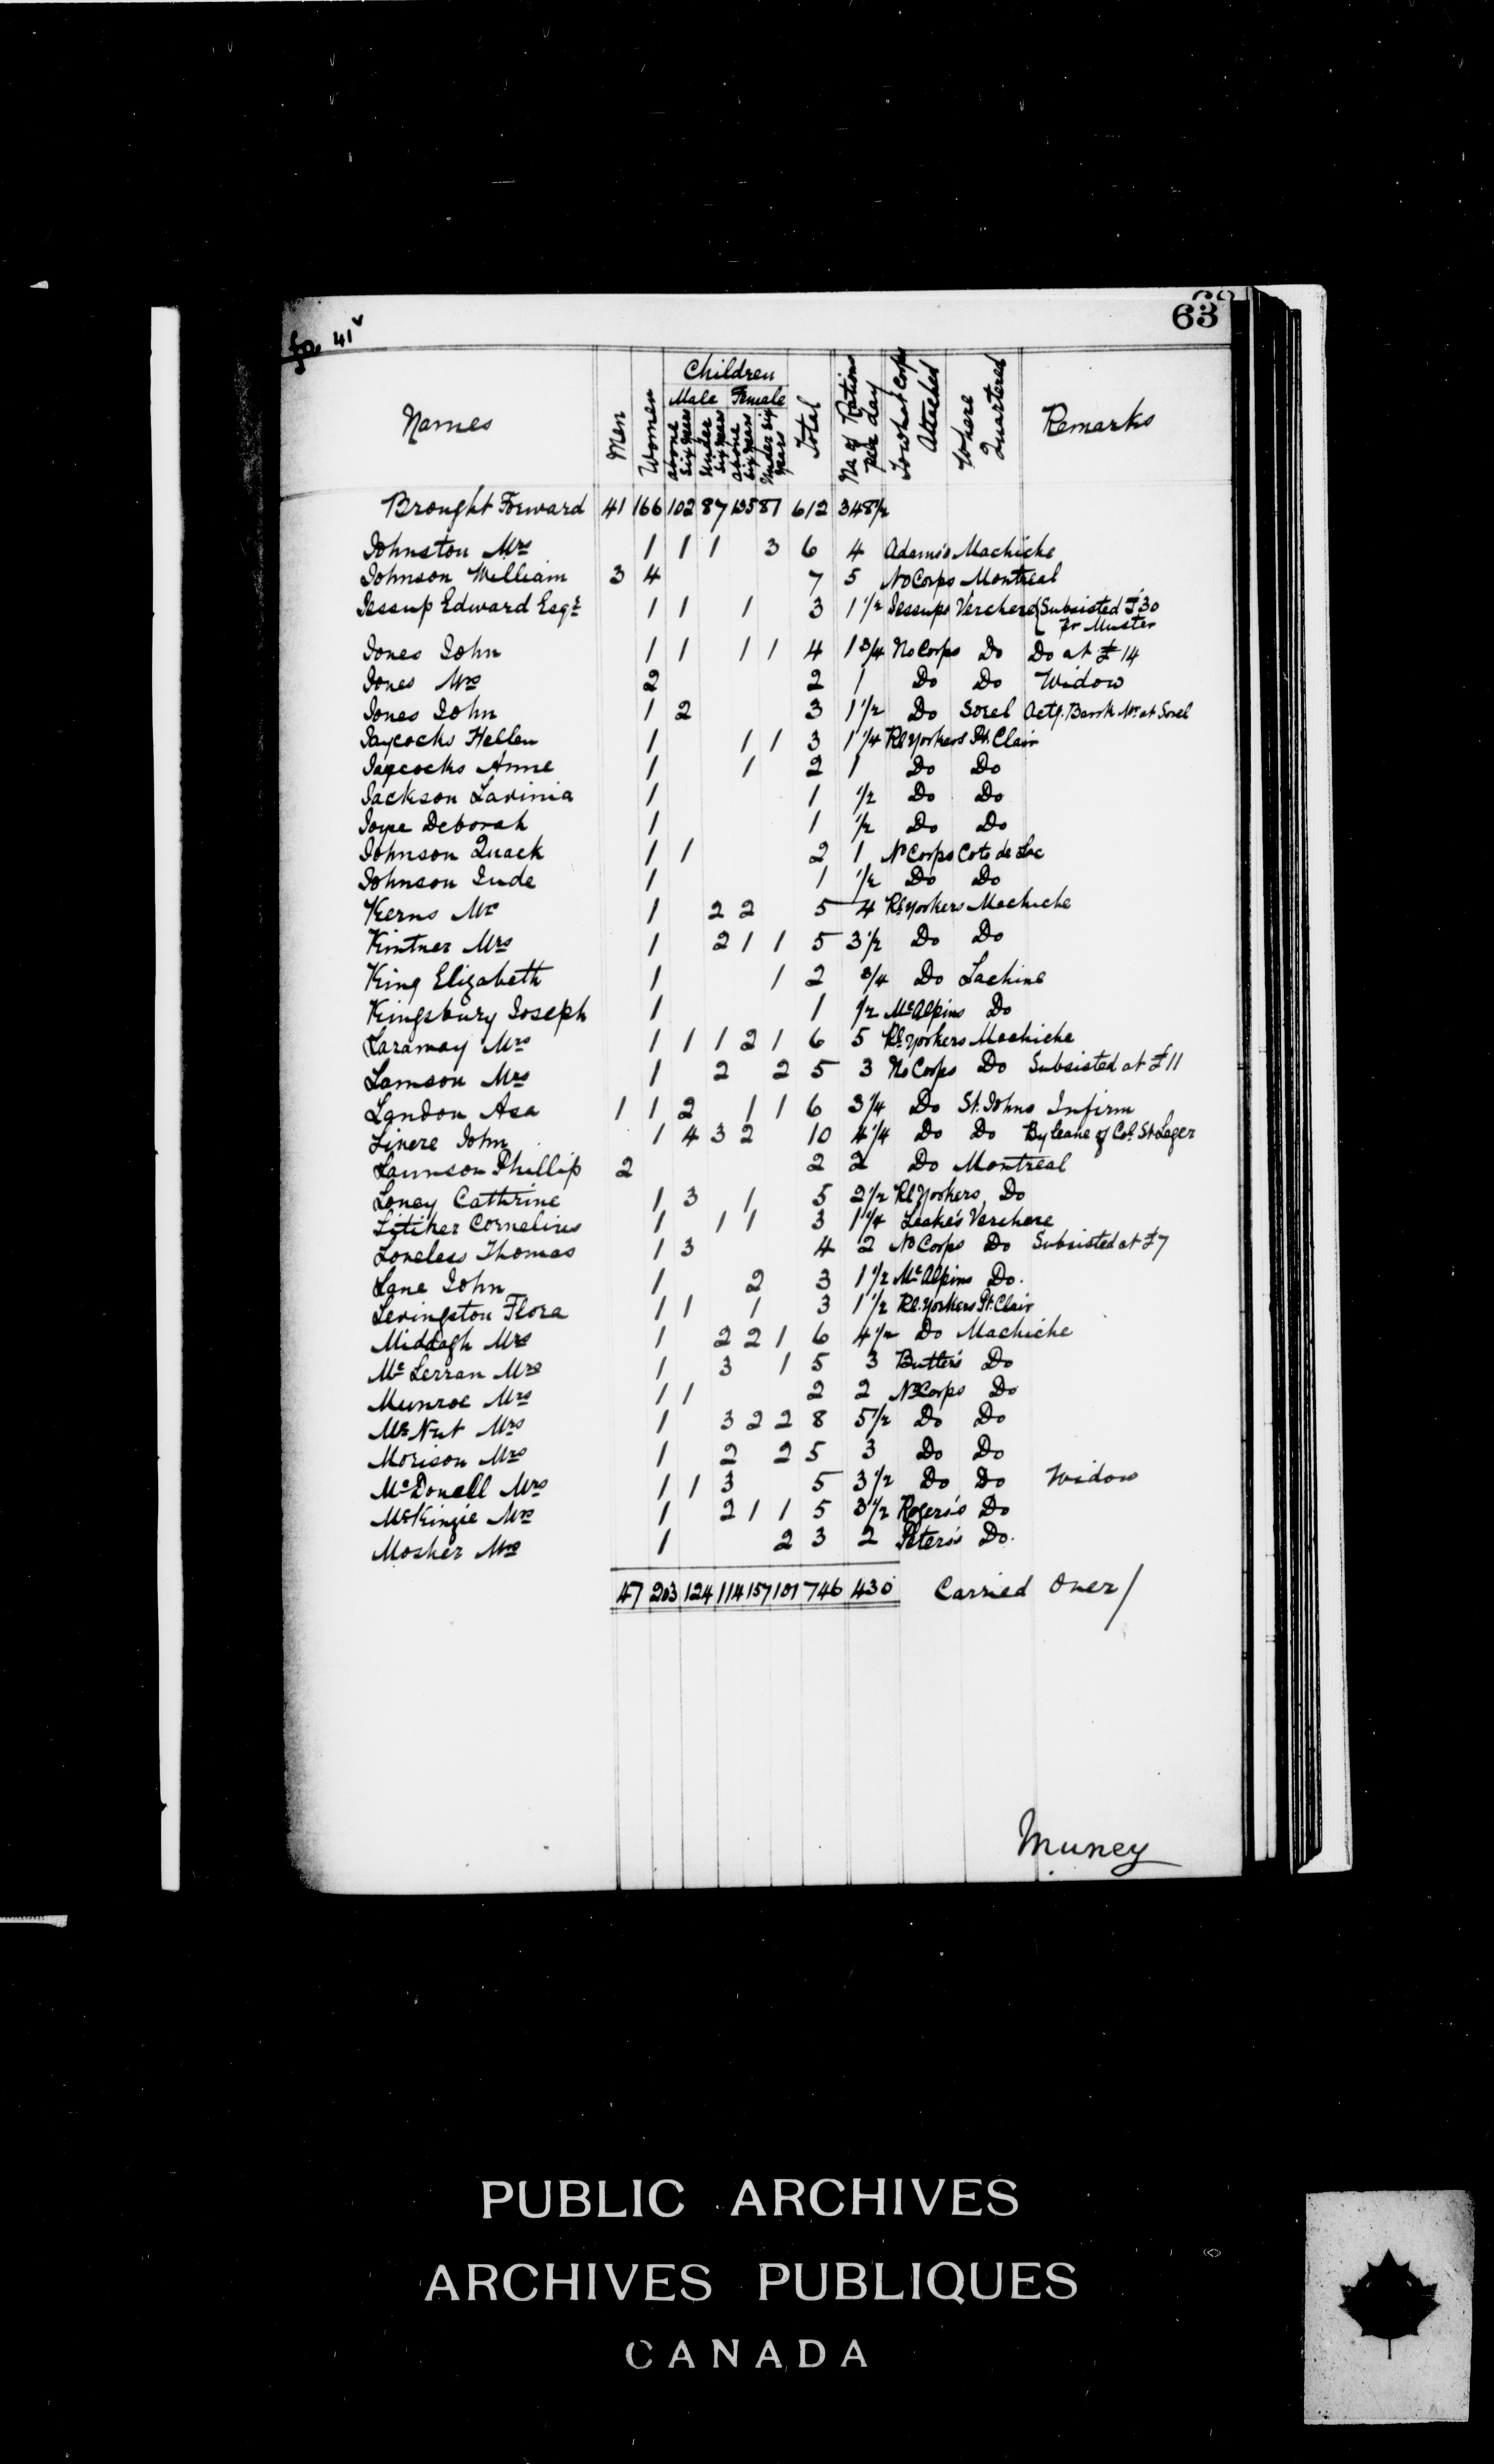 63
fo. 41v
Names Men Women Children Male Female above six years under six years above six years under six years Total No of Rations per day To what Corps Attached Where Quartered Remarks
Brought Forward 41 166 102 87 135 81 612 348 1/2
Johnston Mrs 1 1 1 3 6 4 Adams's Machiche
Johnson William 3 4 7 5 No Corps Montreal
Jessup Edward Esqr 1 1 1 3 1 1/2 Jessups Verchere { Subsisted £30
pr Muster
Jones John 1 1 1 1 4 1 3/4 No Corps Do Do at £14
Jones Mrs 2 2 1 Do Do Widow
Jones John 1 2 3 1 1/2 Do Sorel Actg. Barrk Mr. at Sorel
Jaycocks Hellen 1 1 1 3 1 1/4 Rl Yorkers Pt. Clair
Jaycocks Anne 1 1 2 1 Do Do
Jackson Lavinia 1 1 1/2 Do Do
Joye Deborah 1 1 1/2 Do Do
Johnson Quack 1 1 2 1 No Corps Coto de Lac
Johnson Jude 1 1 1/2 Do Do
Kerns Mrs 1 2 2 5 4 Rl Yorkers Machiche
Kintner Mrs 1 2 1 1 5 3 1/2 Do Do
King Elizabeth 1 1 2 3/4 Do Lachine
Kingsbury Joseph 1 1 1/2 McAlpins Do
Laramay Mrs 1 1 1 2 1 6 5 Rl Yorkers Machiche
Lamson Mrs 1 2 2 5 3 No Corps Do Subsisted at £11
Landon Asa 1 1 2 1 1 6 3 1/4 Do St. Johns Infirm
Linere John 1 4 3 2 10 4 1/4 Do Do By leave of Col. St Leger
Launson Phillip 2 2 2 Do Montreal
Loney Cathrine 1 3 1 5 2 1/2 Rl Yorkers Do
Litiker Cornelius 1 1 1 3 1 1/4 Leake's Verchere
Loneless Thomas 1 3 4 2 No Corps Do Subsisted at £7
Lane John 1 2 3 1 1/2 McAlpins Do.
Levingston Flora 1 1 1 3 1 1/2 Rl. Yorkers Pt. Clair
Middagh Mrs 1 2 2 1 6 4 1/2 Do Machiche
McLerran Mrs 1 3 1 5 3 Butler's Do
Munroe Mrs 1 1 2 2 No Corps Do
McNut Mrs 1 3 2 2 8 5 1/2 Do Do
Morison Mrs 1 2 2 5 3 Do Do
McDonell Mrs 1 1 3 5 3 1/2 Do Do Widow
McKinzie Mrs 1 2 1 1 5 3 1/2 Rogers's Do
Mosher Mrs 1 2 3 2 Peters's Do.
47 203 124 114 157 101 746 430 Carried Over/
Muney
PUBLIC ARCHIVES
ARCHIVES PUBLIQUES
CANADA